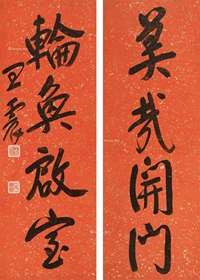 莫哉開門
輪奐啟宇
王震